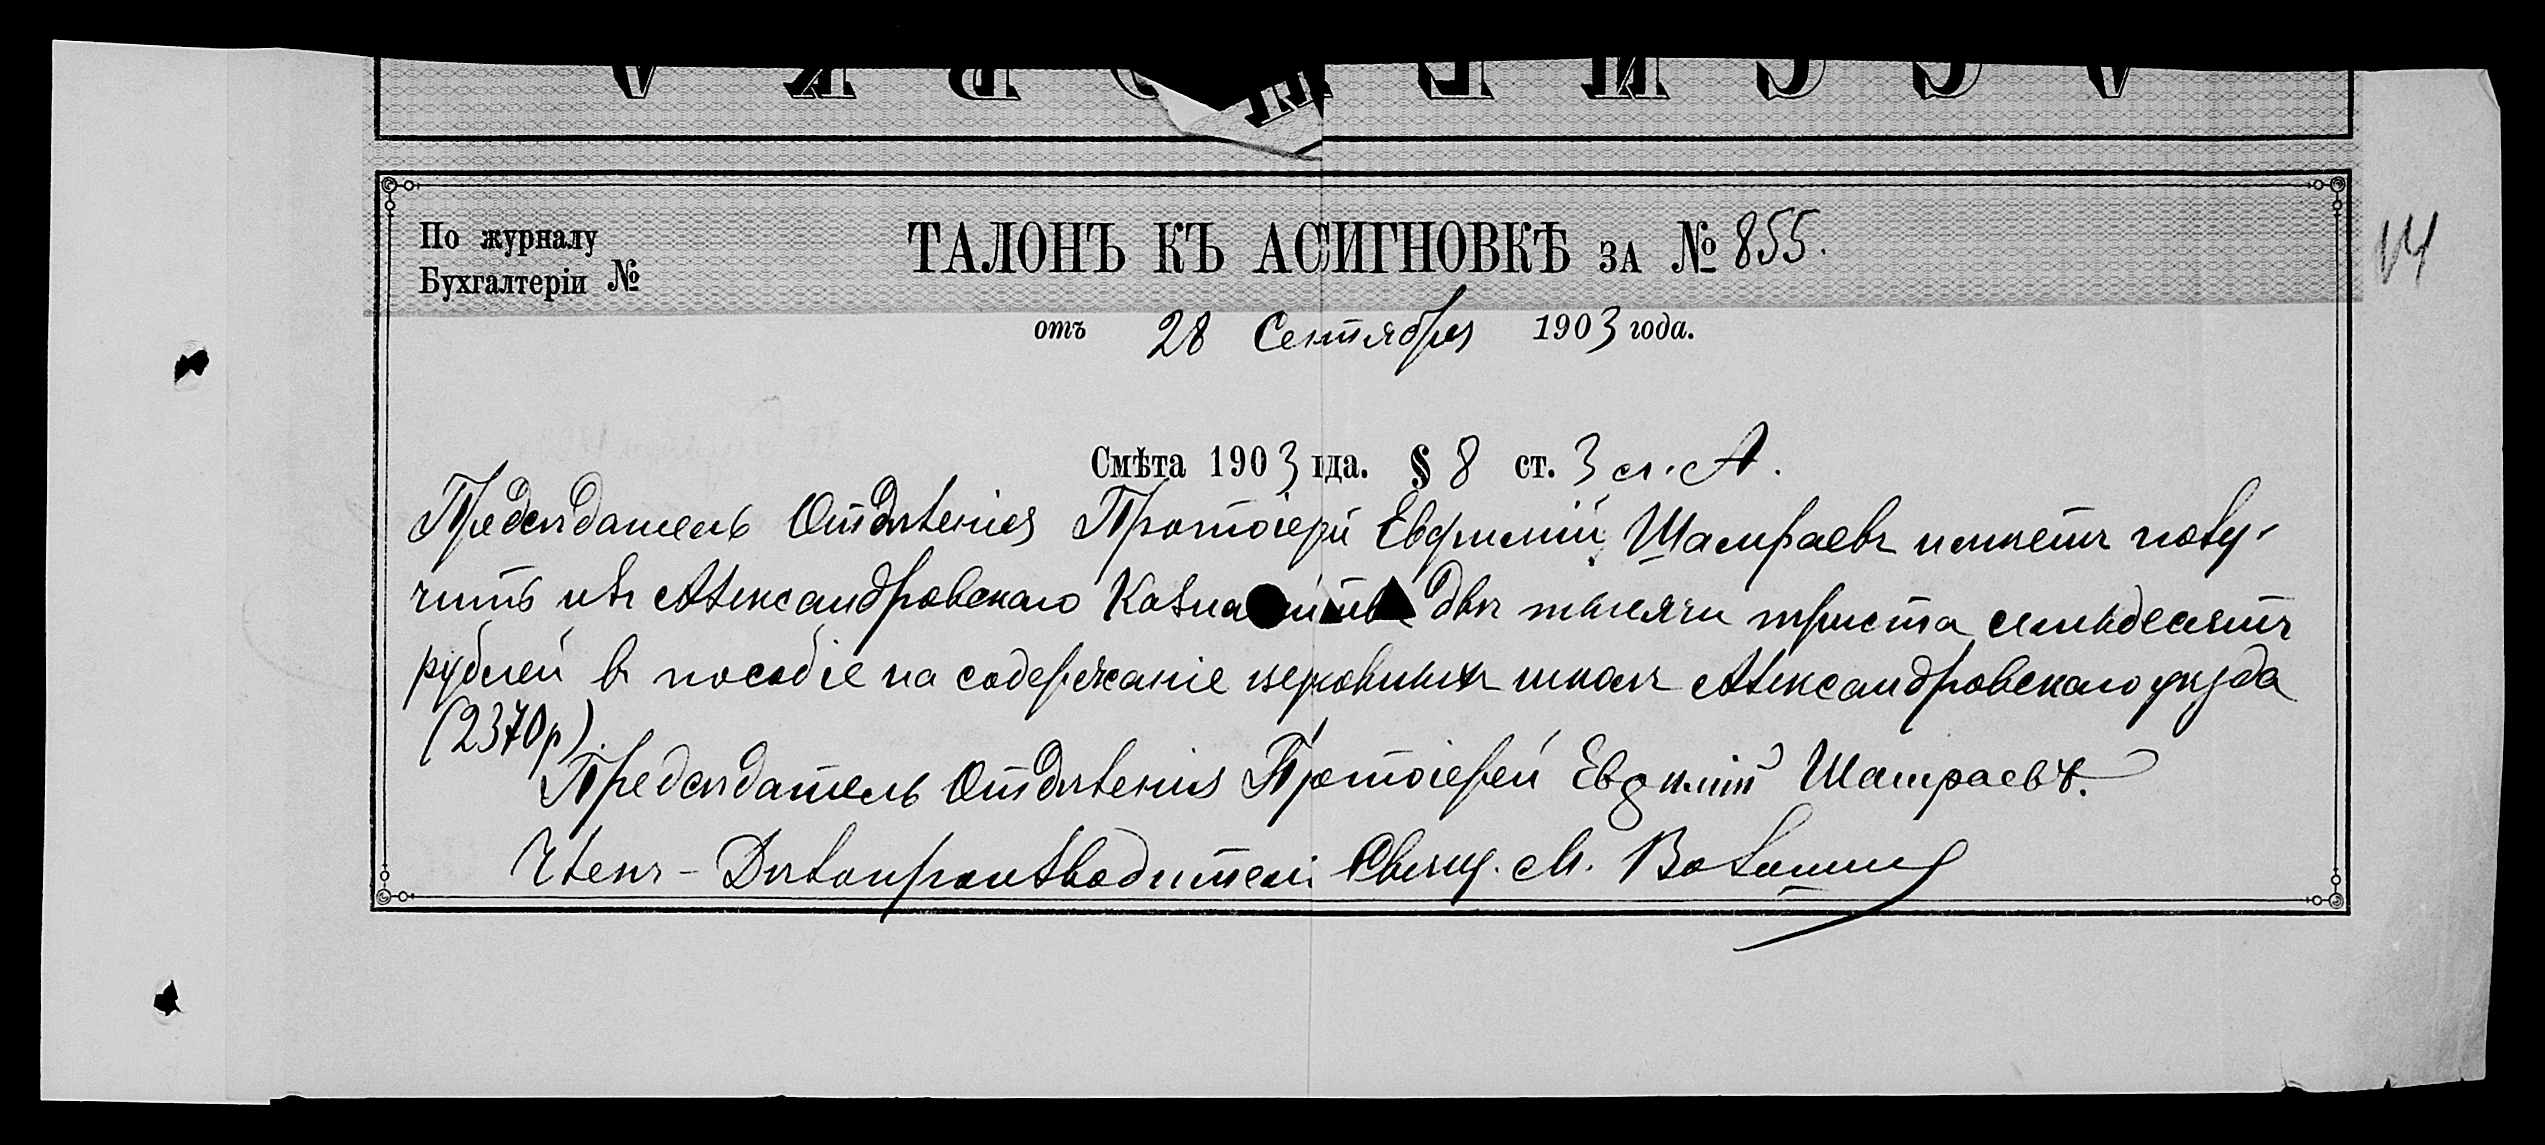 АССИГНОВКА
По журналу
Бухгалтеріи №
ТАЛОНЪ КЪ АСИГНОВКѢ ЗА № 855.
14
отъ 28 Сентября 1903 года.
Смѣта 1903 гда. § 8 ст. 3 л. А.
Предсѣдатель Отдѣленія Протоіерей Евфимій Шамраевъ имѣетъ полу-
чить изъ Александровскаго Казна двѣ тысячи триста семьдесятъ
рублей въ пособіе на содержаніе церковныхъ школъ Александровскаго уѣзда
(2370р).
Предсѣдатель Отдѣленія Протоіерей Евфимій Шамраевъ.
Членъ-Дѣлопроизводитель Свящ. М.